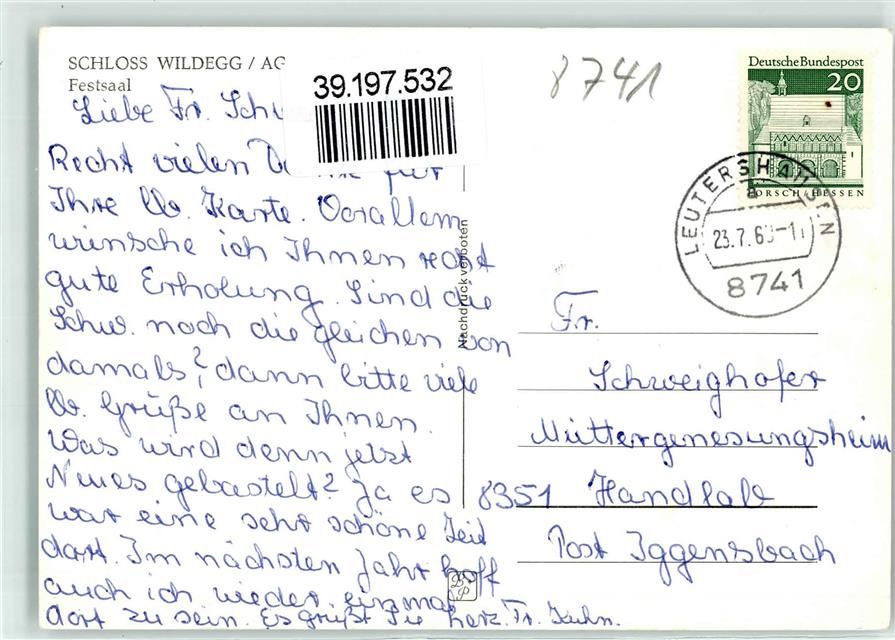 SCHLOSS WILDEGG / AG
Festsaal
39.197.532
8741
Deutsche Bundespost
20
LORSCH/HESSEN
LEUTERSHAUSEN
a
23.7.6
8741
Liebe Fr.
Recht vielen für
Ihre lb. Karte. Vorallem
wünsche ich Ihnen recht
gute Erholung. Sind die
Schw. noch die gleichen von
damals? dann bitte viele
lb. Grüße an Ihnen.
Was wird denn jetzt
Neues gebastelt? Ja es
war eine sehr schöne Zeit
dort. Im nächsten Jahr hoff
auch ich wieder einmal
dort zu sein. Es grüßt Sie herz. Fr. Kuhn.
Nachdruck verboten
Fr.
Schweighofer
Müttergenesungsheim
8351 Handlab
Post Iggensbach